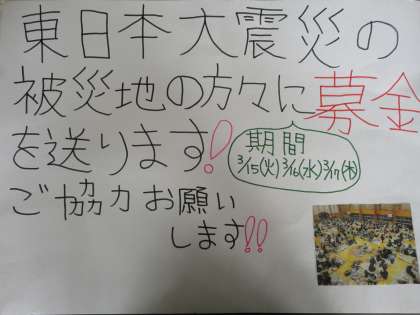 東日本大震災の
被災地の方々に募金
を送ります!
期間
3/15(火) 3/16(水) 3/17(木)
ご協力お願い
します!!